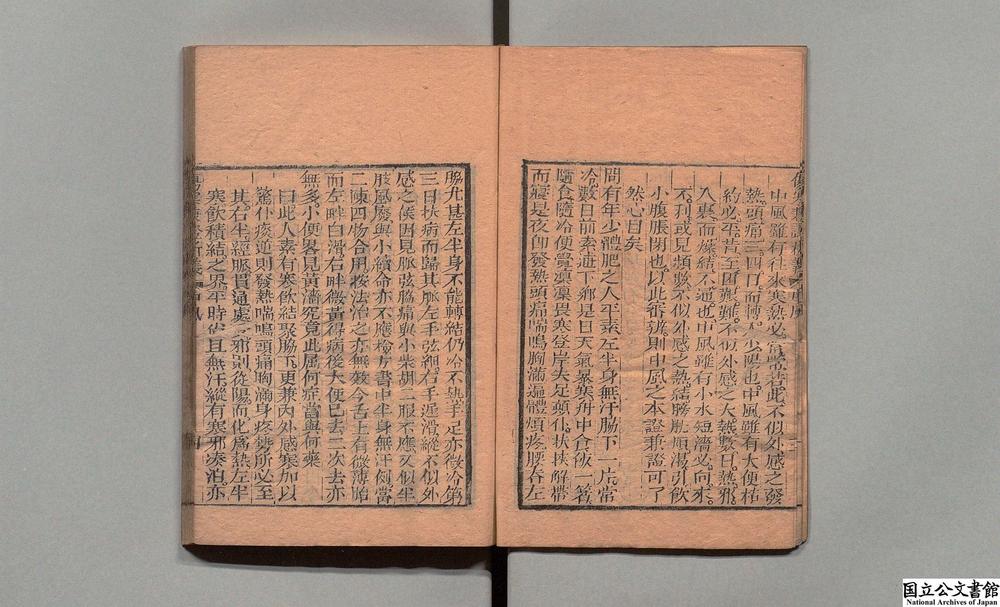 中風雖有往來寒熱必當常若此不似外感之發
熱頭痛三四日而轉少陽也中風雖有大便枯
約必平昔至困艱難不似外感之大熱數日熱邪
入裏而燥結不通也中風雖有小水短濇必向來
不利或見頻數不似外感之熱結膀胱煩渴引飲
小腹脹閉也以此番辨則中風之本證兼證可了
然心目矣
問有年少體肥之人平素左半身無汗脇下一片常
冷數日前索逋下鄉是日天氣暴寒舟中食飯一箸
隨食隨冷便覺凛凜畏寒登岸失足顛仆扶挾解帶
而寢是夜卽發熱頭痛喘鳴胸滿遍體煩疼腰脊左
脇尤甚左半身不能轉結仍冷不熱手足亦微冷第
三日扶病而歸其脈左手弦細右手遲滑縱不似外
感之候因見脈弦脇痛與小柴胡二服不應又似半
肢風廢與小續命亦不應檢方書中半身無汗例當
二陳四物合用按法治之亦無效今舌上有微薄胎
而左畔白滑右畔微黃得病後大便已去二次去亦
無多小便畧見黃濇究竟此屬何症當與何藥
曰此人素有寒飲結聚脇下更兼內外感寒加以
驚仆痰逆則發熱喘鳴頭痛胸滿身疼諸所必至
其右半經脈貫通處受邪則從陽而化爲熱左半
寒飲積結之界平時尙且無汗縱有寒邪湊泊亦
国立公文書館
National Archives of Japan